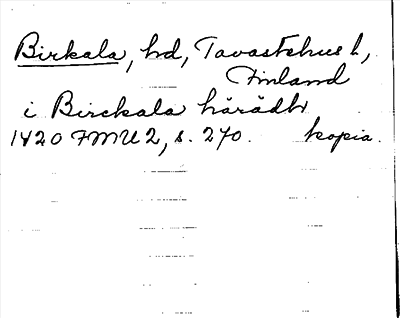 Birkala, hd, Tavastehus l,
Finland
i Birckala härädh
1420 FMU 2, s. 270. kopia.